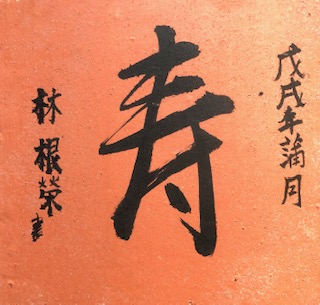 戊戌年蒲月
寿
林根榮書